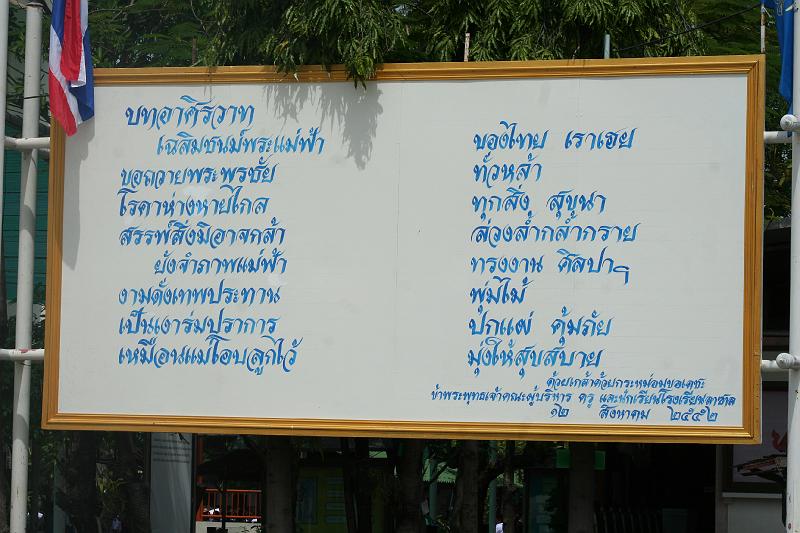 บทอาศิรวาท
เฉลิมชนม์พระแม่ฟ้า ของไทย เราเฮย
ขอถวายพระพรชัย ทั่วหล้า
โรคาห่างหายไกล ทุกสิ่ง สุขนา
สรรพ์สิ่งมิอาจกล้า ล่วงล้ำกล้ำกราย
ยังจำภาพแม่ฟ้า ทรงงาน ศิลปาฯ
งามดั่งเทพประทาน พุ่มไม้
เป็นเงาร่มปราการ ปกแผ่ คุ้มภัย
เหมือนแม่โอบลูกไว้ มุ่งให้สุขสบาย
ด้วยเกล้าด้วยกระหม่อมขอเดชะ
ข้าพระพุทธเจ้าคณะผู้บริหาร ครู และนักเรียนโรงเรียนลาซาล
๑๒ สิงหาคม ๒๕๕๒